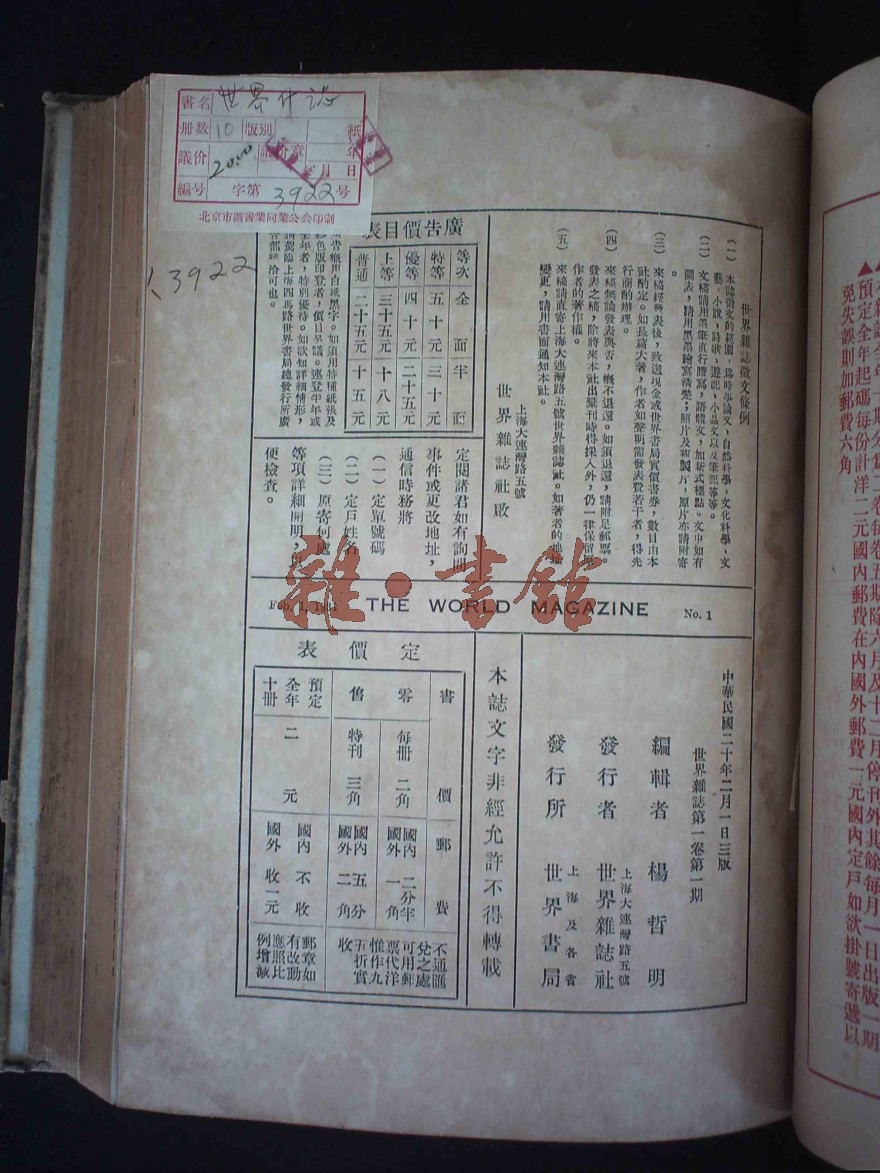 書名 世界什誌
册数 10 版別 紙
議价 2000 年
月 日
編号 字第 3922号
北京市圖書業同業公会印制
3922
世界雜誌徵文條例
(一) 本誌徵文的範圍,爲時事論文、自然科學、文化科學、文藝、小說、詩歌、遊記、小品文以及筆記等等。
(二) 文稿請用墨筆直行謄寫,語體文,加新式標點。文中如有圖表,請用黑墨繪寫清楚;照片及銅製片,原片亦請附寄。
(三) 來稿經發表後,致送現金或世界書局實價書券,數目由本社酌定。如長篇大著,作者如聲明需發表費若干者,得先行商酌辦理。
(四) 來稿無論發表與否,概不退還。如須退還,請附足郵票。發表之稿,除將來本社出彙刊時得採入外,仍一律保留原作者的著作權。
(五) 來稿請直寄上海大連灣路五號世界雜誌社。如著者的地址變更,請用書面通知本社。
上海大連灣路五號
世界雜誌社啟
廣告價目表
等次 全面 半面
特等 五十元 三十元
優等 四十元 二十五元
上等 三十五元 十八元
普通 二十五元 十五元
告概用白紙黑字。如須用特種紙張及
彩色版印登者,價目另議。連登半年或
全年者,特別優待。如欲知詳細情形,
請駕臨上海四馬路世界書局總發行所廣
告部接洽可也。
定閱諸君如有詢問
事件或更改地址,
通信時務將
(一)定單號碼
(二)定戶姓名
(三)原寄何處
等項詳細開明
便檢查。
Feb. 1, 1931 THE WORLD MAGAZINE No. 1
雜·書館
中華民國二十年二月一日三版
世界雜誌第一卷第一期
編輯者 楊哲明
上海大連灣路五號
發行者 世界雜誌社
上海及各省
發行所 世界書局
本誌文字非經允許不得轉載
定價表
書價 郵費
零售 每冊 二角 國內 二分半 國外 一角
特刊 三角 國內 五分 國外 二角
預定全年十冊 二元 國內 不收 國外 收一元
不通匯
兌之處
可用郵
票代洋
惟作九
五折實
收
郵章如
有改動
應照比
例增減
預定全年起碼每份計洋二元國內郵費在內國外郵費一元國內定戶如欲掛號寄遞以
免失誤則加郵費六角